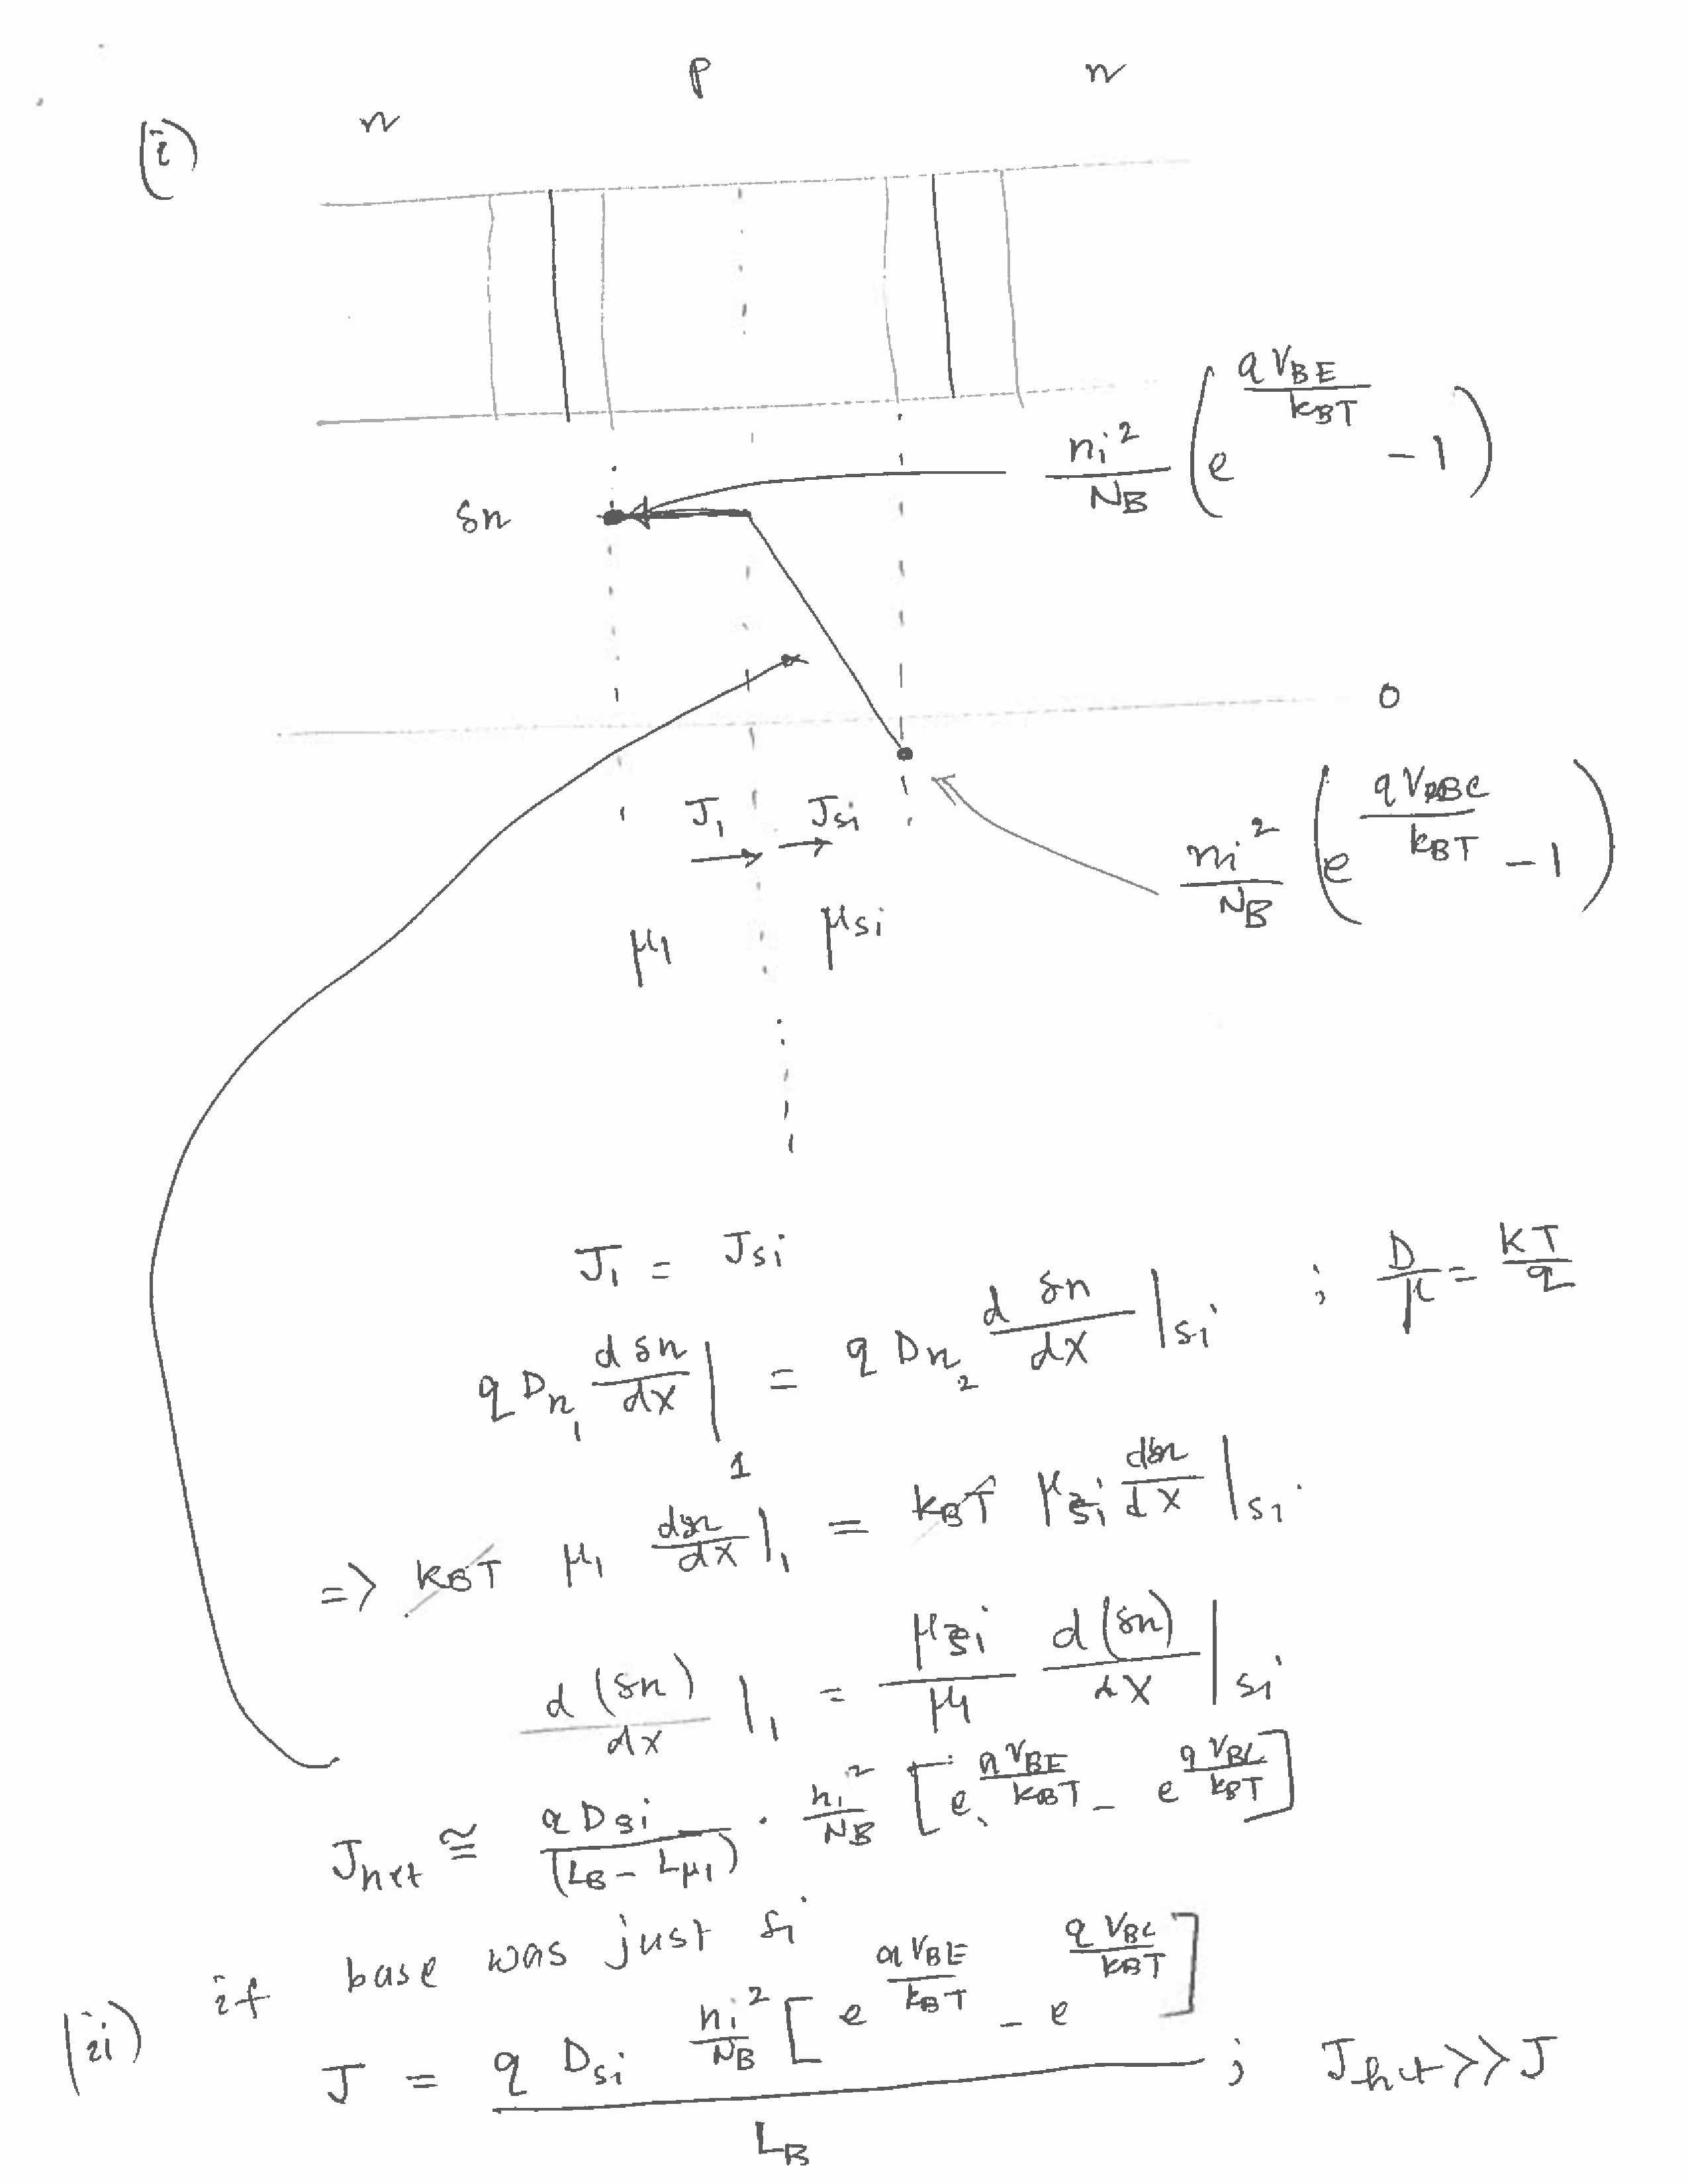 (i)
n p n
n_i^2/N_B (e^{qV_BE/k_BT} - 1)
δn
0
J_1 J_si
n_i^2/N_B (e^{qV_BC/k_BT} - 1)
μ_1 μ_si
J_1 = J_si
q D_n1 dδn/dx |_1 = q D_n2 dδn/dx |_si ; D/μ = KT/q
=> k_BT μ_1 dδn/dx |_1 = k_BT μ_si dδn/dx |_si
d(δn)/dx |_1 = μ_si/μ_1 d(δn)/dx |_si
J_het ≅ q D_si/(L_B - L_μ1) · n_i^2/N_B [e^{qV_BE/k_BT} - e^{qV_BC/k_BT}]
(ii) if base was just si
J = q D_si n_i^2/N_B [e^{qV_BE/k_BT} - e^{qV_BC/k_BT}] / L_B ; J_het >> J